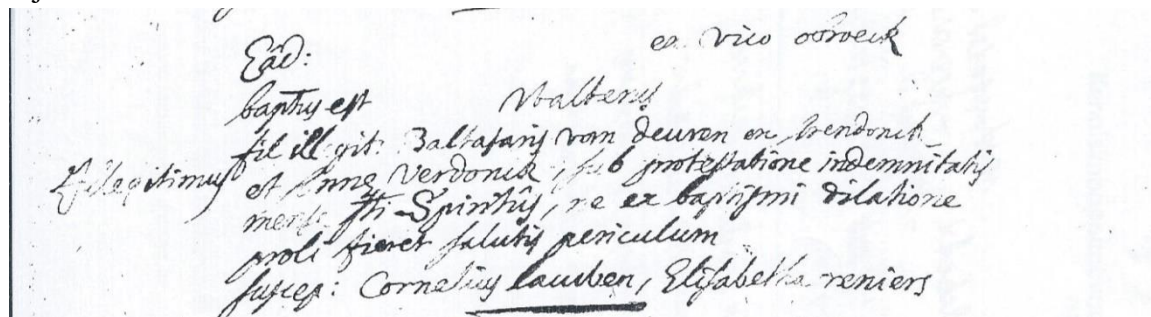 ex vico oorveck
Eâd:
baptus est Walterus
fil illegit: Baltasaris vom deuren ex
Illegitimus et Anne Verdonck, sub protestatione indemnitatis
mense Sti Spiritûs, ne ex baptismi dilatione
proli fieret salutis periculum
suscep: Cornelius lauwben, Elisabetha reniers